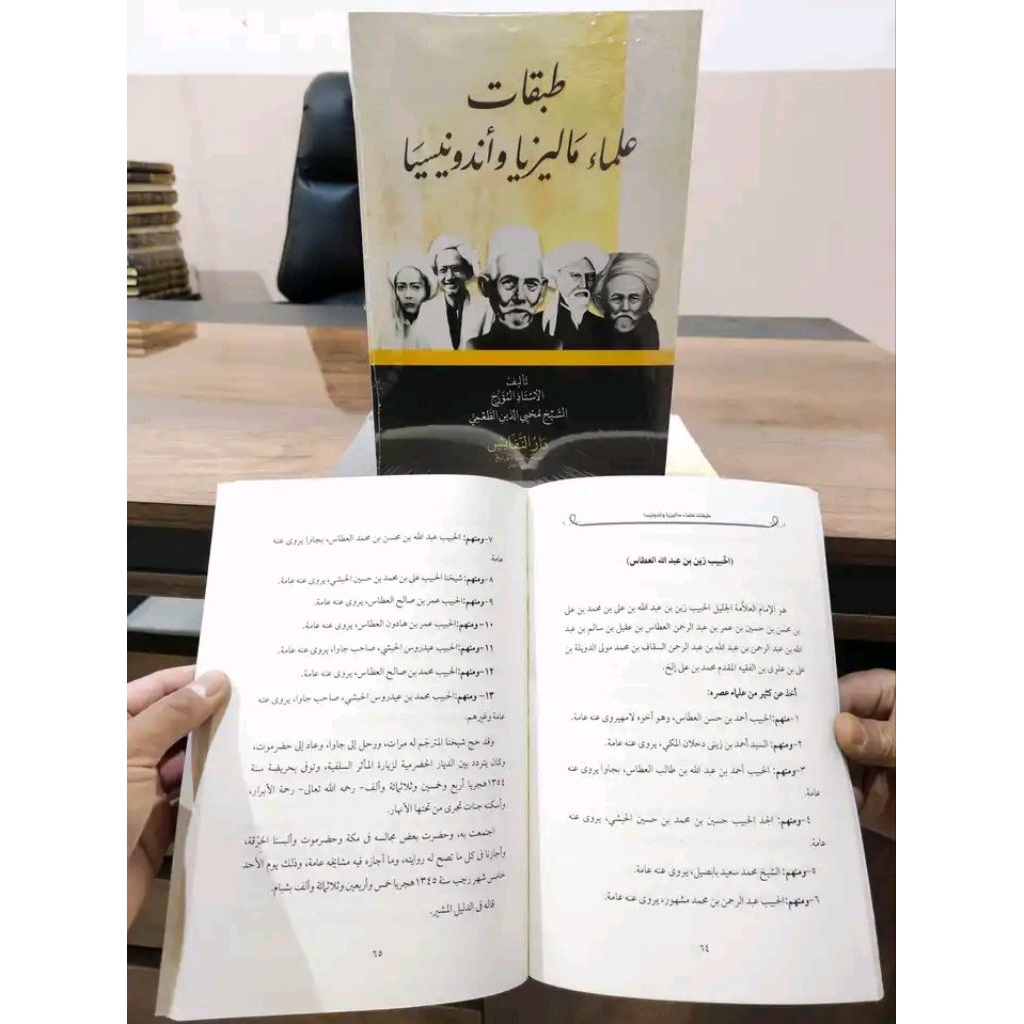 طبقات
علماء ماليزيا وأندونيسيا
تَأليفُ
الأسْتَاذ المُؤَرِّخ
الشَّيْخ مُحيي الدِّين الطُّعْمِيّ
دَارُ النَّفَائِسِ
طبقات علماء ماليزيا وأندونيسيا
(الحبيب زين بن عبد الله العطاس)
هو الإمام العلامة الجليل الحبيب زين بن عبد الله بن على بن محمد بن على
بن محسن بن حسين بن عمر بن عبد الرحمن العطاس بن عقيل بن سالم بن عبد
الله بن عبد الرحمن بن عبد الله بن عبد الرحمن السقاف بن محمد مولى الدويلة بن
على بن علوى بن الفقيه المقدم محمد بن على إلخ.
أخذ عن كثير من علماء عصره:
١-منهم: الحبيب أحمد بن حسن العطاس، وهو أخوه لامهيروى عنه عامة.
٢-ومنهم: السيد أحمد بن زينى دحلان المكي، يروى عنه عامة.
٣-ومنهم: الحبيب أحمد بن عبد الله بن طالب العطاس، بجاوا يروى عنه
عامة.
٤-ومنهم: الجد الحبيب حسين بن محمد بن حسين الحبشي، يروى عنه
عامة.
٥-ومنهم: الشيخ محمد سعيد بابصيل، يروى عنه عامة.
٦-ومنهم: الحبيب عبد الرحمن بن محمد مشهور، يروى عنه عامة.
٦٤
٧-ومنهم: الحبيب عبد الله بن محسن بن محمد العطاس، بجاوا يروى عنه
عامة
٨-ومنهم: شيخنا الحبيب على بن محمد بن حسين الحبشي، يروى عنه عامة.
٩-ومنهم: الحبيب عمر بن صالح العطاس، يروى عنه عامة.
١٠-ومنهم: الحبيب عمر بن هادون العطاس، يروى عنه عامة.
١١-ومنهم: الحبيب عيدروس الحبشي، صاحب جاوا، يروى عنه عامة.
١٢-ومنهم: الحبيب محمد بن صالح العطاس، يروى عنه عامة.
١٣-ومنهم: الحبيب محمد بن عيدروس الحبشي، صاحب جاوا، يروى عنه
عامة وغيرهم.
وقد حج شيخنا المترجَم له مرات، ورحل إلى جاوا، وعاد إلى حضرموت،
وكان يتردد بين الديار الحضرمية لزيارة المآثر السلفية، وتوفى بحريضة سنة
١٣٥٤هجريا أربع وخمسين وثلاثمائة وألف- رحمه الله تعالى- رحمة الأبرار،
وأسكنه جنات تجرى من تحتها الأنهار.
اجتمعت به، وحضرت بعض مجالسه فى مكة وحضرموت وألبسنا الخرقة،
وأجازنا فى كل ما تصح له روايته، وما أجازه فيه مشايخه عامة، وذلك يوم الأحد
خامس شهر رجب سنة ١٣٤٥هجريا خمس وأربعين وثلاثمائة وألف بشبام.
قاله فى الدليل المشير.
٦٥